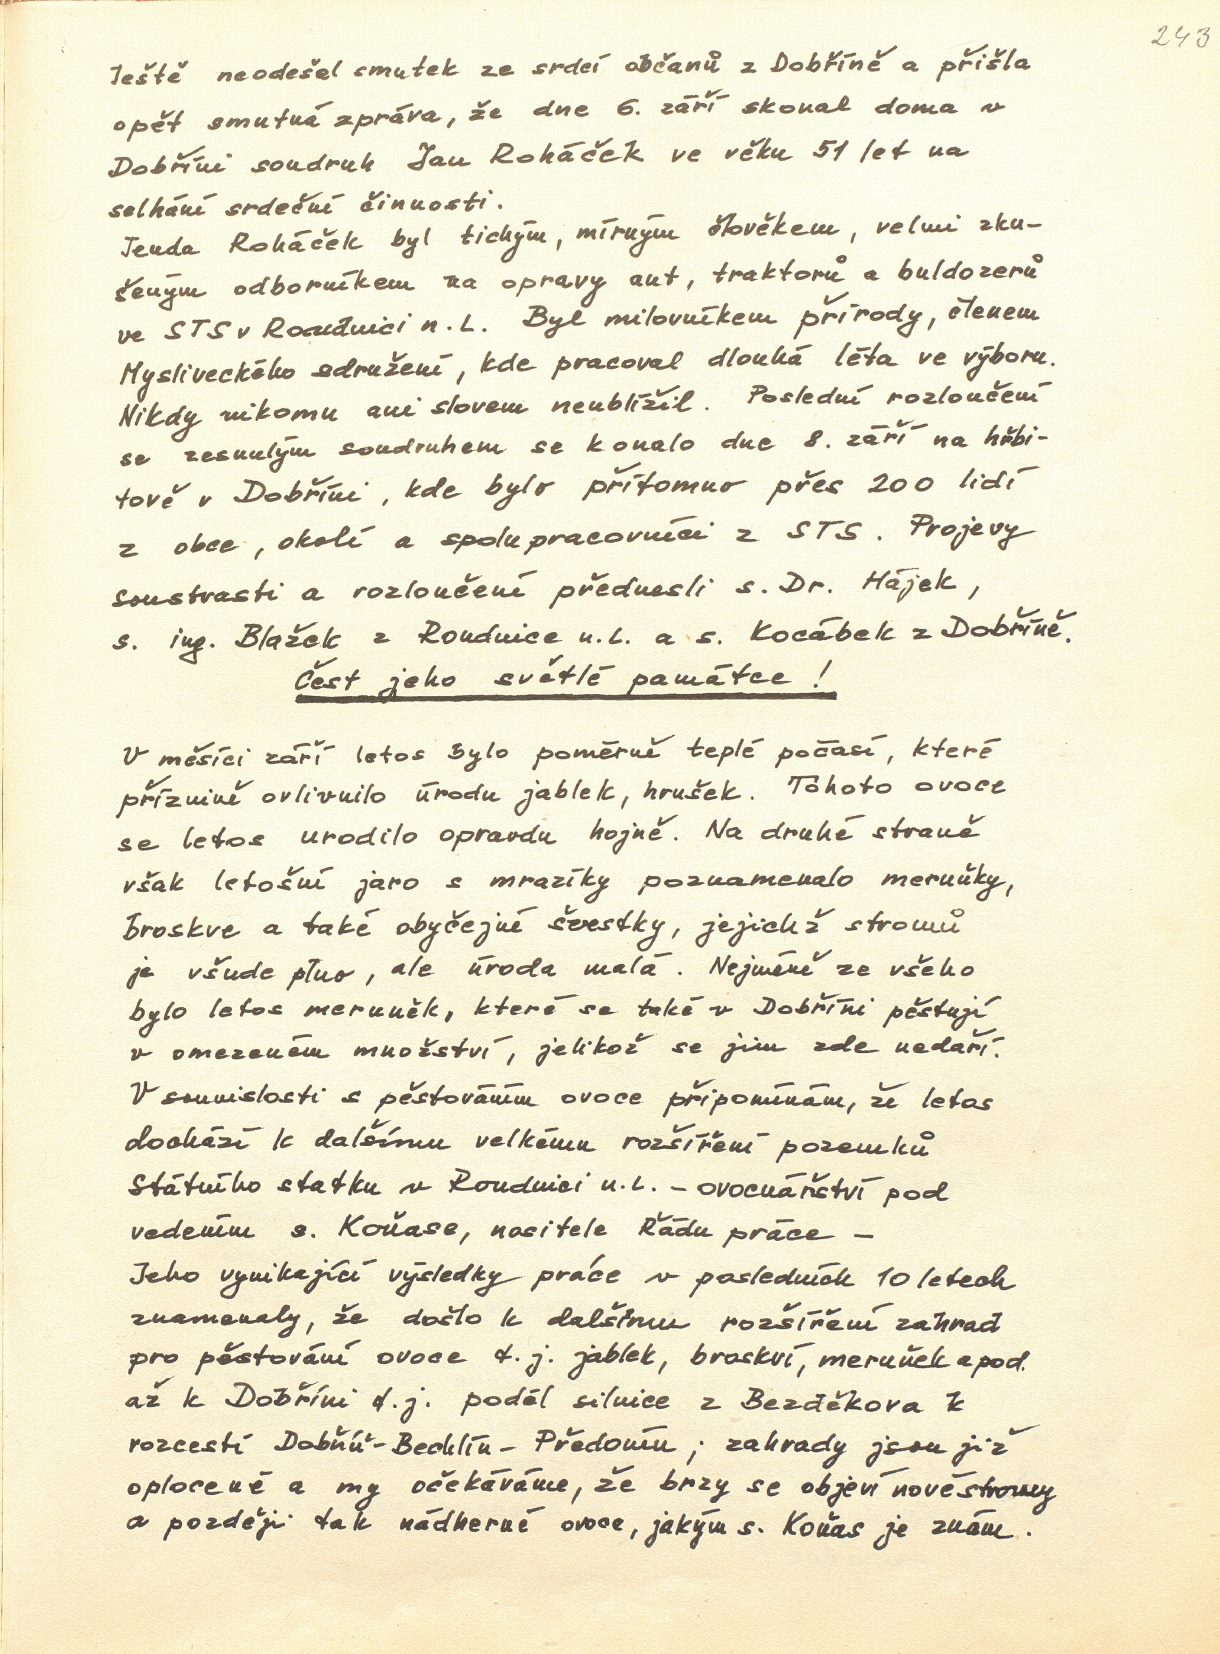 243
Ještě neodešel smutek ze srdcí občanů z Dobříně a přišla
opět smutná zpráva, že dne 6. září skonal doma v
Dobříni soudruh Jan Roháček ve věku 51 let na
selhání srdeční činnosti.
Jenda Roháček byl tichým, mírným člověkem, velmi zku-
šeným odborníkem na opravy aut, traktorů a buldozerů
ve STS v Roudnici n.L. Byl milovníkem přírody, členem
Mysliveckého sdružení, kde pracoval dlouhá léta ve výboru.
Nikdy nikomu ani slovem neublížil. Poslední rozloučení
se zesnulým soudruhem se konalo dne 8. září na hřbi-
tově v Dobříni, kde bylo přítomno přes 200 lidí
z obce, okolí a spolupracovníci z STS. Projevy
soustrasti a rozloučení přednesli s. Dr. Hájek,
s. ing. Blažek z Roudnice n.L. a s. Kocábek z Dobříně.
Čest jeho světlé památce!
V měsíci září letos bylo poměrně teplé počasí, které
příznivě ovlivnilo úrodu jablek, hrušek. Tohoto ovoce
se letos urodilo opravdu hojně. Na druhé straně
však letošní jaro s mrazíky poznamenalo meruňky,
broskve a také obyčejné švestky, jejichž stromů
je všude plno, ale úroda malá. Nejméně ze všeho
bylo letos meruněk, které se také v Dobříni pěstují
v omezeném množství, jelikož se jim zde nedaří.
V souvislosti s pěstováním ovoce připomínám, že letos
dochází k dalšímu velkému rozšíření pozemků
Státního statku v Roudnici n.L. - ovocnářství pod
vedením s. Koňase, nositele Řádu práce -
Jeho vynikající výsledky práce v posledních 10 letech
znamenaly, že došlo k dalšímu rozšíření zahrad
pro pěstování ovoce t.j. jablek, broskví, meruňek a pod.
až k Dobříni t.j. podél silnice z Bezděkova k
rozcestí Dobříň - Bechlín - Předonín; zahrady jsou již
oplocené a my očekáváme, že brzy se objeví nové stromy
a později tak nádherné ovoce, jakým s. Koňas je znám.